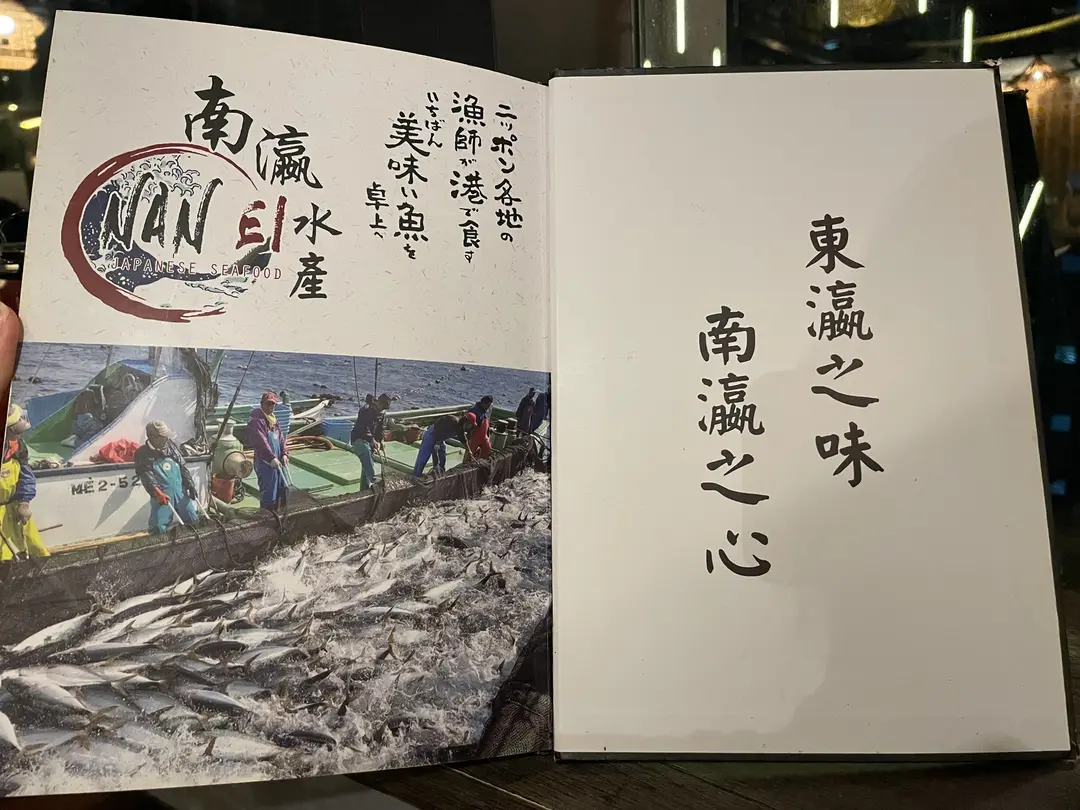 南瀛水產
NAN EI
JAPANESE SEAFOOD
ニッポン各地の
漁師が港で食す
いちばん
美味い魚を
卓上へ
ME2-52
東瀛之味
南瀛之心